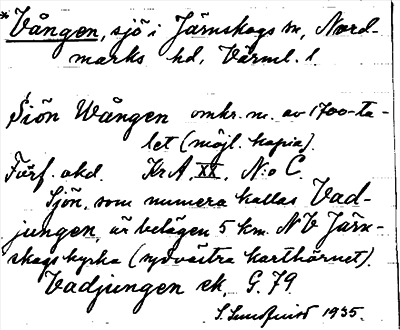 *Vången, sjö i Järnskogs sn, Nord-
marks hd, Värml. l.
Siön Wången omkr. m. av 1700-ta-
let (möjl. kopia).
Förf. okd. KrA, XX, N:o C.
Sjön, som numera kallas Vad-
jungen, är belägen 5 km. NV Järn-
skogs kyrka (sydvästra karthörnet).
Vadjungen ek. G. 79.
1935.